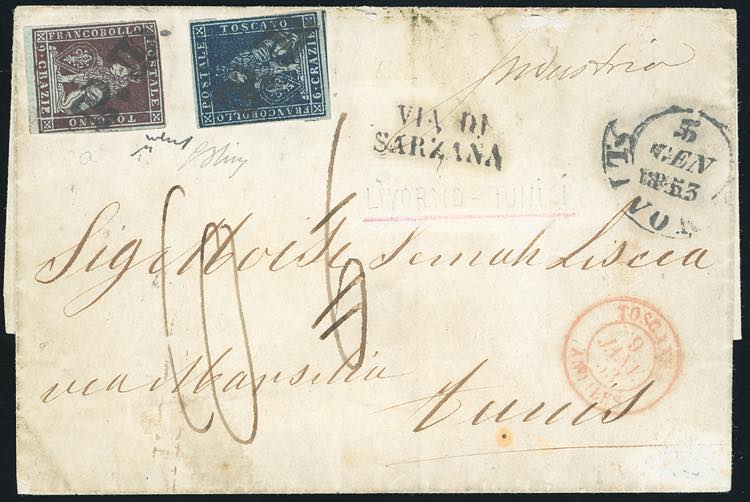 FRANCOBOLLO
POSTALE
TOSCANO
9 CRAZIE
TOSCANO
6 CRAZIE
FRANCOBOLLO
POSTALE
Industria
VIA DI
SARZANA
5
GEN
1853
LIVORNO - TUNISI
Sig. Moise Semah Liscia
via Marsilia
Tunis
TOSC.
9
JANV.